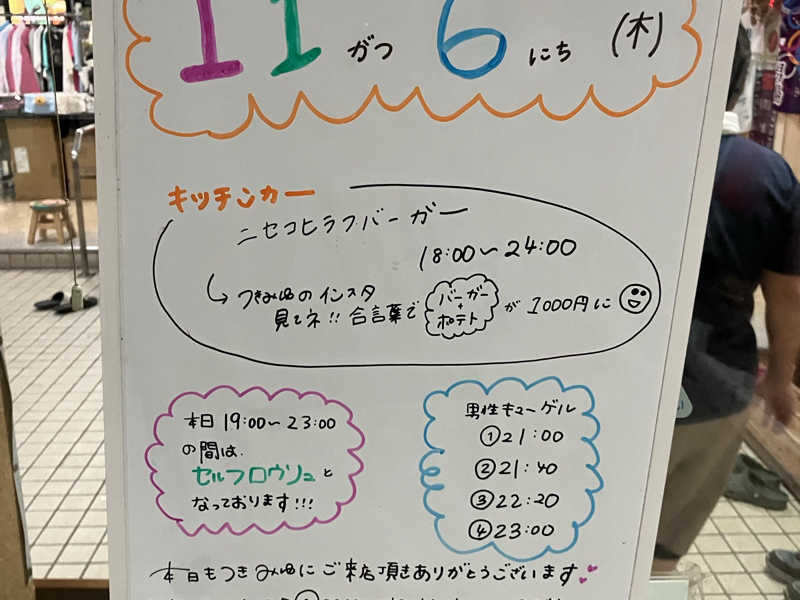 11がつ6にち(木)
キッチンカー
ニセコヒラフバーガー
18:00〜24:00
つきみゆのインスタ
見てネ!! 合言葉で
バーガー
+
ポテト
が1000円に
本日19:00〜23:00
の間は、
セルフロウリュと
なっております!!!
男性キューゲル
①21:00
②21:40
③22:20
④23:00
本日もつきみゆにご来店頂きありがとうございます